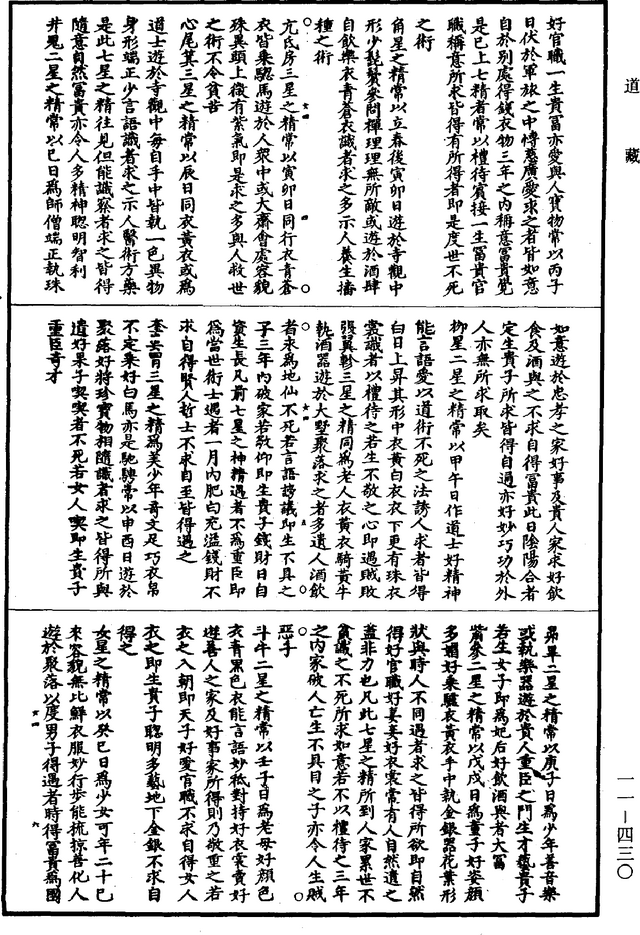 道藏
好官職一生貴冨亦愛與人寳物常以丙子
日伏於軍旅之中博慈廣愛求之者皆如意
自於别處得錢衣物三年之內稱意冨貴覺
是巳上七精者常以禮待賓接一生冨貴官
職稱意所求皆得有所得者即是度世不死
之術
角星之精常以立春後寅卯日遊於寺觀中
形少髭鬢參問禪理理無所敵或遊於酒肆
自飲樂衣青蒼衣識者求之多示人養生播
種之術
亢氐房三星之精常以寅卯日同行衣青蒼
衣皆乗驄馬遊於人衆中或大齋會處容貌
殊異頭上微有紫氣即是求之多與人救世
之術不令貧苦
心尾箕三星之精常以辰日同衣黃衣或爲
道士遊於寺觀中每自手中皆執一色異物
身形端正少言語識者求之示人醫術方藥
是此七星之精往見但能識察者求之皆得
隨意自然冨貴亦令人多精神聰明智利
井鬼二星之精常以巳日爲師僧端正執珠
如意遊於忠孝之家好事及貴人家求好飲
食及酒與之不求自得冨貴此日陰陽合者
定生貴子所求皆得自過亦好妙巧功於外
人亦無所求取矣
柳星二星之精常以甲午日作道士好精神
能言語愛以道術不死之法誘人求者皆得
白日上昇其形中衣黃白衣衣下更有珠衣
裳識者以禮待之若生不敬之心即遇賊敗
張翼軫三星之精同爲老人衣黃衣騎黃牛
執酒器遊於大墅聚落求之者多遺人酒飲
者求爲地仙不死若言語謗議即生不具之
子三年內破家若敬仰即生貴子錢財日自
資生長凡前七星之神精遇者不爲重臣即
爲當世術士遇者一月內肥白充溢錢財不
求自得賢人哲士不求自至皆得遇之
奎婁胃三星之精爲美少年奇文足巧衣帛
不定乗好白馬亦是馳騁常以申酉日遊於
聚落好將珍寳物相隨識者求之皆得所與
遺好果子喫喫者不死若女人喫即生貴子
重臣奇才
昴畢二星之精常以庚子日爲少年善音樂
或執樂器遊於貴人重臣之門生才藝貴子
若生女子即爲妃后好飲酒與者大冨
觜參二星之精常以戊戌日爲童子好姿顔
多媚好乗驢衣黃衣手中執金銀器花葉形
狀與時人不同遇者求之皆得所欲即自然
得好官職好妻妾好衣裳常有人自然遺之
蓋非力也凡此七星之精所到人家累世不
貧識之不死所求如意若不以禮待之三年
之內家破人亡生不具目之子亦令人生賊
惡子
斗牛二星之精常以壬子日爲老母好顔色
衣青黒色衣能言語妙袛對持好衣裳賣好
遊善人之家及好事家所得則乃敬重之若
衣之入朝即天子好愛官職不求自得女人
衣之即生貴子聰明多藝地下金銀不求自
得之
女星之精常以癸巳日爲少女可年二十巳
來容貌無比鮮衣服妙行步能梳掠善化人
遊於聚落以度男子得遇者時得冨貴爲國
一一—四三〇